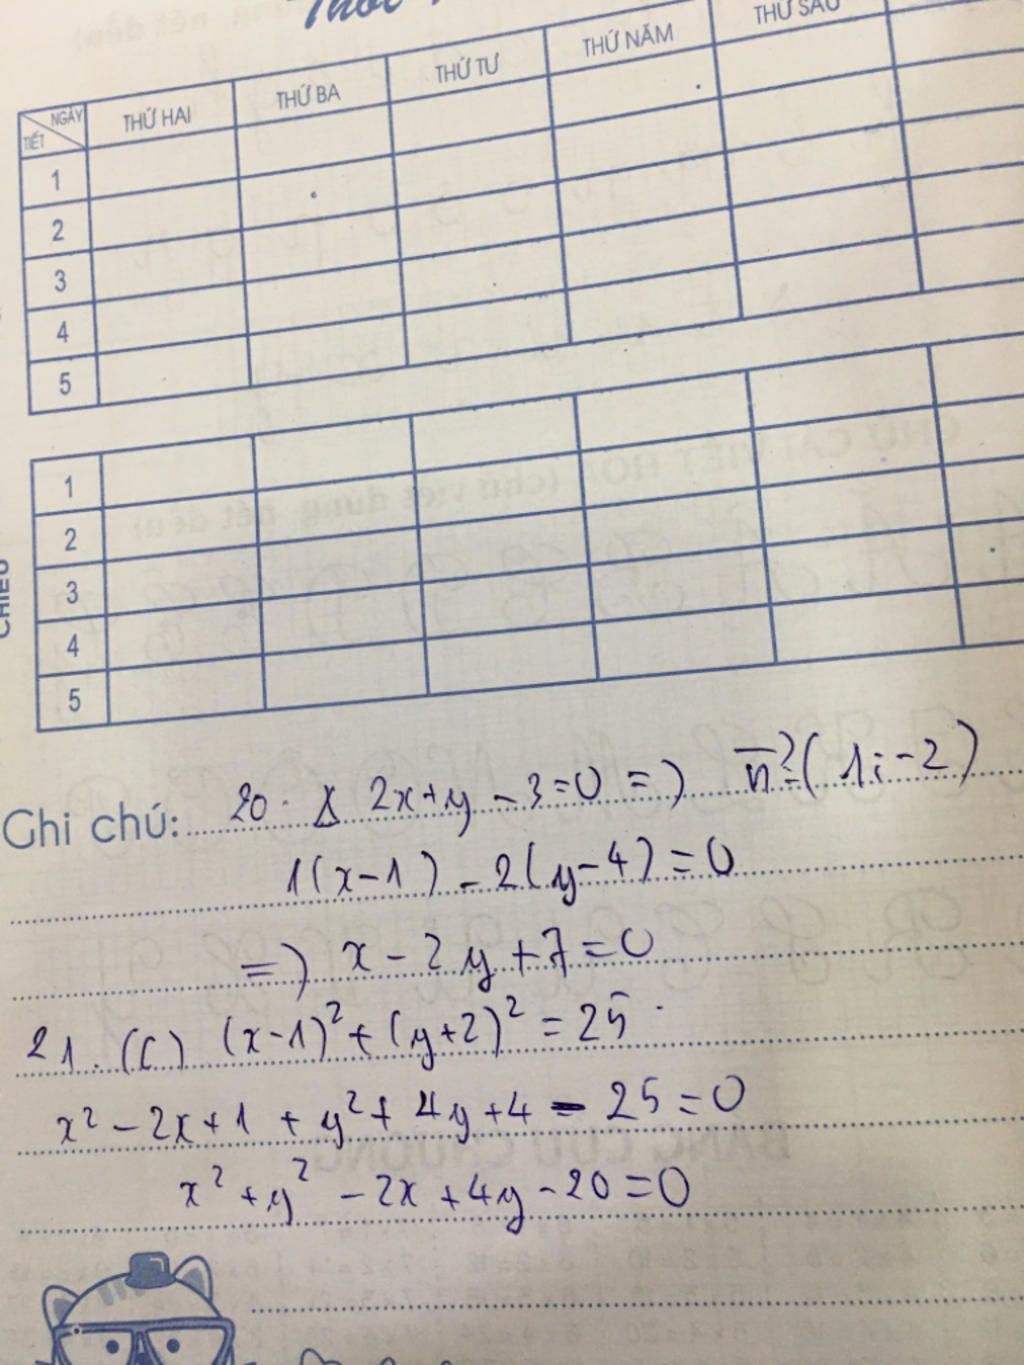 THỨ HAI THỨ BA THỨ TƯ THỨ NĂM THỨ SÁU
NGÀY
TIẾT
1
2
3
4
5
CHIỀU
1
2
3
4
5
Ghi chú: 20. Δ 2x+y-3=0 => n=(1;-2)
1(x-1)-2(y-4)=0
=) x-2y+7=0
21. (C) (x-1)²+(y+2)²=25.
x²-2x+1+y²+4y+4-25=0
x²+y²-2x+4y-20=0